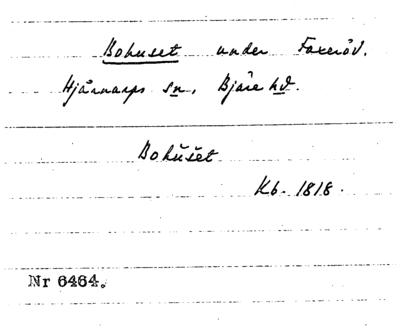 Bohuset under Faxeröd.
Hjärnarps sn, Bjäre hd.
Bohŭset
Kb. 1818.
Nr 6464.